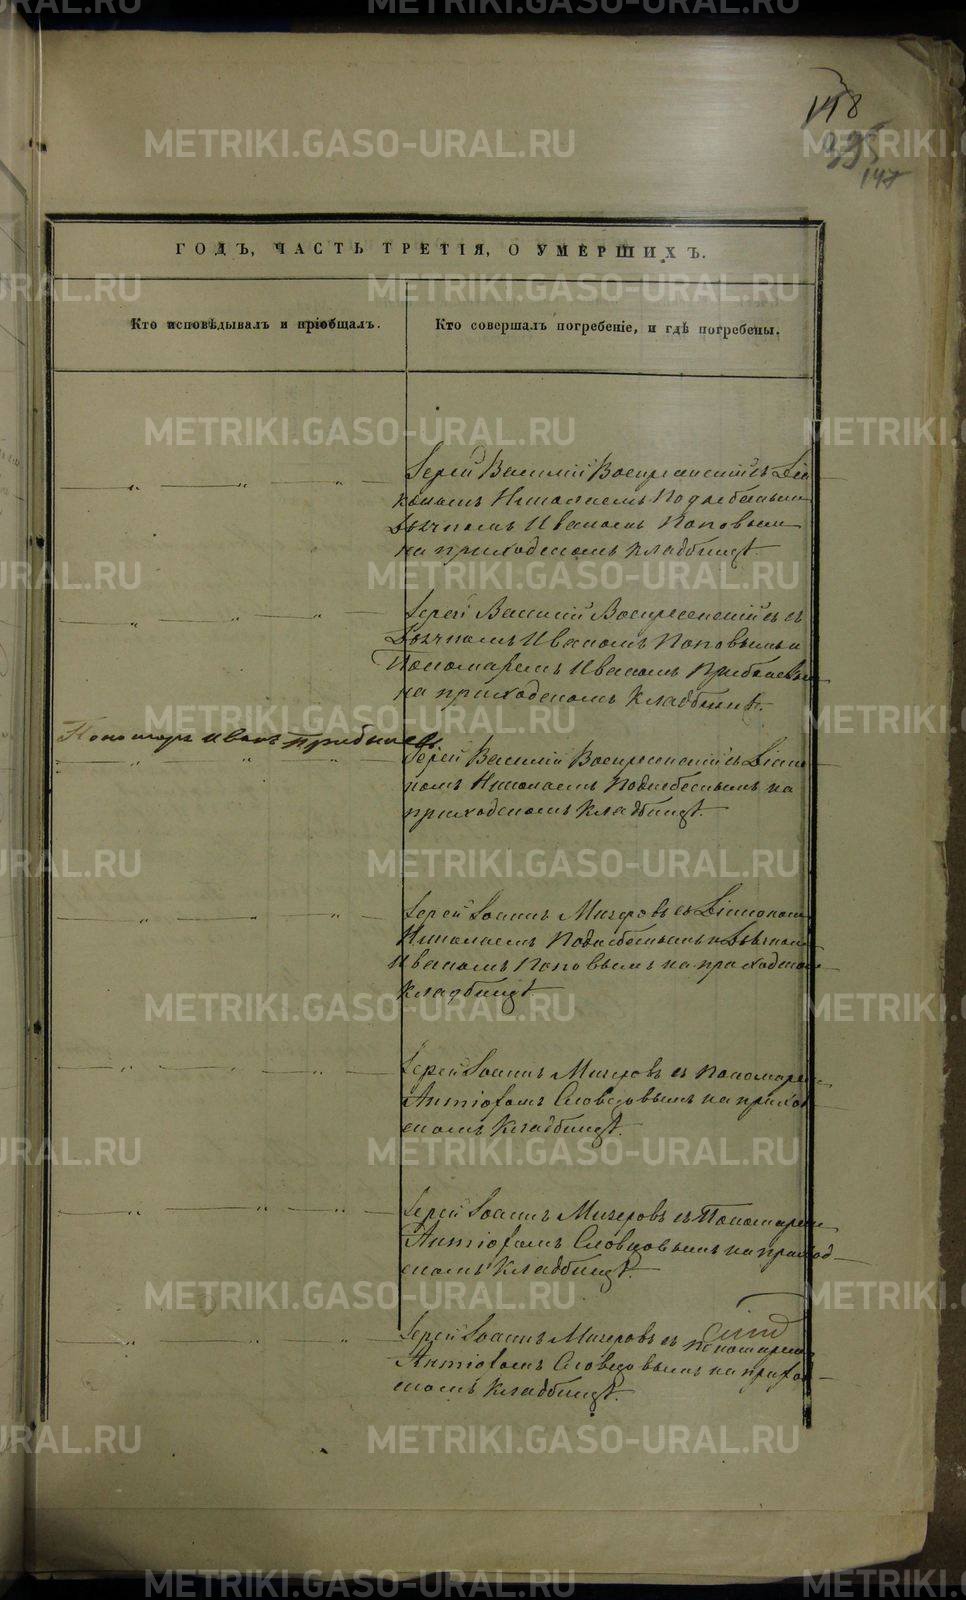 148
147
ГОДЪ, ЧАСТЬ ТРЕТІЯ, О УМЕРШИХЪ.
Кто исповѣдывалъ и пріобщалъ.
Кто совершалъ погребеніе, и гдѣ погребены.
Іерей Василий Воскресенский съ Діа
кономъ Николаемъ Поднебеснымъ
Дьячкомъ Иваномъ Поповымъ
на приходскомъ кладбищѣ.
Іерей Василий Воскресенский съ
Дьячкомъ Иваномъ Поповымъ и
Пономаремъ Иваномъ
на приходскомъ кладбищѣ.
Пономарь Иванъ
Іерей Василий Воскресенский съ Діако
номъ Николаемъ Поднебеснымъ на
приходскомъ кладбищѣ.
Іерей Іоаннъ Мичеровъ съ Діакономъ
Николаемъ Поднебеснымъ и Дьячкомъ
Иваномъ Поповымъ на приходскомъ
кладбищѣ
Іерей Іоаннъ Мичеровъ съ Пономаремъ
Словцовымъ на приход
скомъ кладбищѣ.
Іерей Іоаннъ Мичеровъ съ Пономаремъ
Словцовымъ на приход
скомъ кладбищѣ.
Іерей Іоаннъ Мичеровъ съ Пономаремъ
Словцовымъ на приход
скомъ кладбищѣ.
METRIKI.GASO-URAL.RU